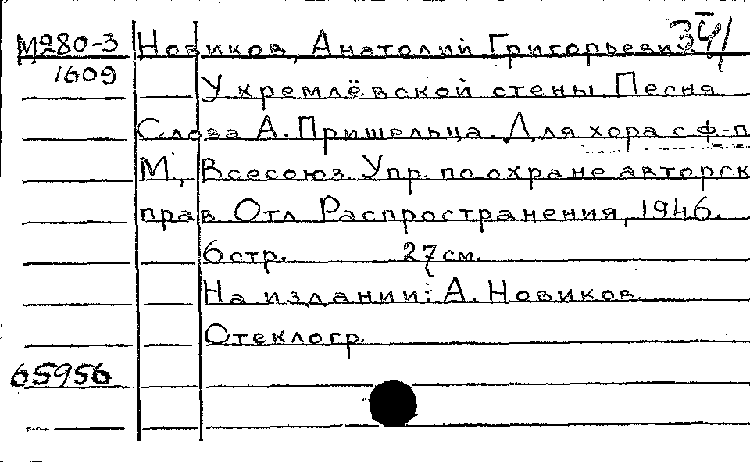 М280-3 Новиков, Анатолий Григорьевич
1609 У кремлёвской стены Песня
Слова А. Пришельца. Для хора с ф-п
М., Всесоюз. Упр. по охране авторск
прав Отл Распространения, 1946.
6 стр. 27 см.
На издании: А. Новиков
Стеклогр.
65956